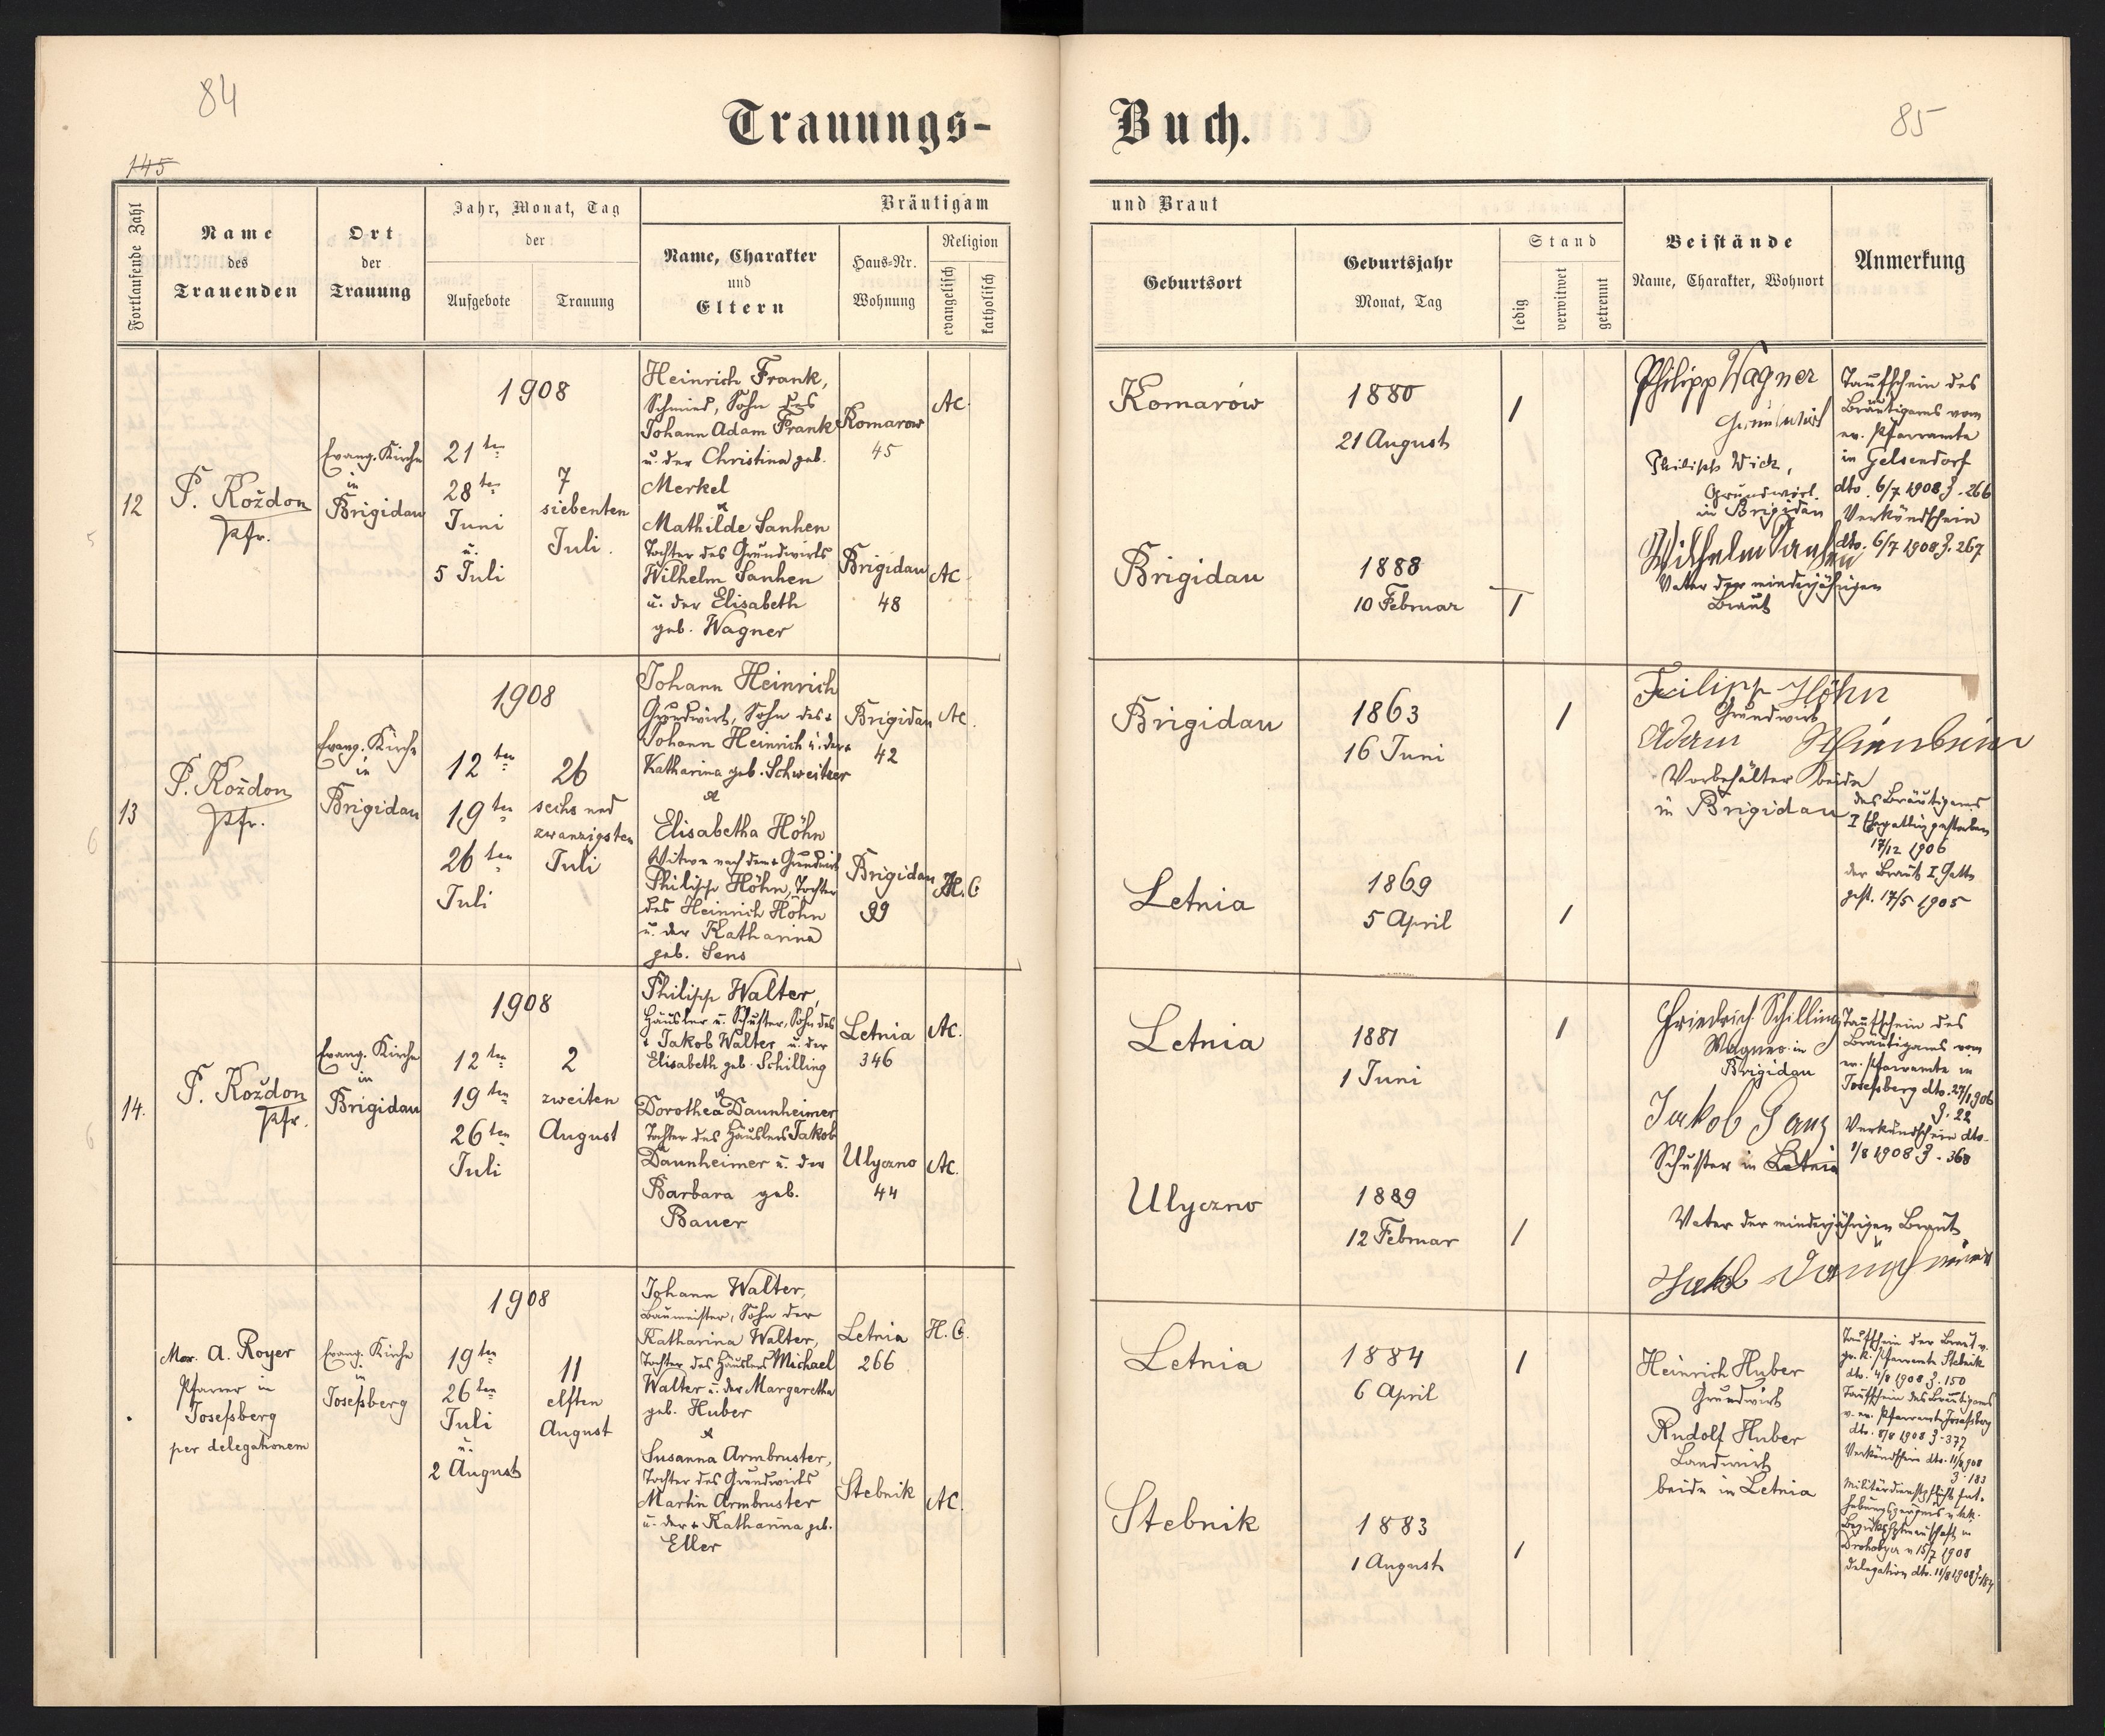 84
85
Trauungs-
Buch.
145
Fortlaufende Zahl
Name
des
Trauenden
Ort
der
Trauung
Jahr, Monat, Tag
der
Aufgebote
Trauung
Bräutigam
Name, Charakter
und
Eltern
Haus-Nr.
Wohnung
Religion
evangelisch
katholisch
und Braut
Geburtsort
Geburtsjahr
Monat, Tag
Stand
ledig
verwitwet
getrennt
Beistände
Name, Charakter, Wohnort
Anmerkung
12
P. Koždon
Pfr.
Evang. Kirche
in
Brigidau
1908
21ten
28ten
Juni
u.
5 Juli
7
siebenten
Juli.
Heinrich Frank,
Schmied, Sohn des
Johann Adam Frank
u. der Christina geb.
Merkel
&
Mathilde Sanhen
Tochter des Grundwirts
Wilhelm Sanhen
u. der Elisabeth
geb. Wagner
Komarow
45
AC.
Brigidau
48
AC.
Komarow
1880
21 August
1
Brigidau
1888
10 Februar
1
Philipp Wagner
Grundwirt
Philipp Wick,
Grundwirt
in Brigidau
Wilhelm Sanhen
Vater der minderjährigen
Braut
Taufschein des
Bräutigams vom
ev. Pfarramte
in Gelsendorf
dto. 6/7 1908 Z. 266
Verkündschein
dto. 6/7 1908 Z. 267
13
P. Koždon
Pfr.
Evang. Kirche
in
Brigidau
1908
12ten
19ten
26ten
Juli
26
sechs und
zwanzigsten
Juli
Johann Heinrich
Grundwirt, Sohn des +
Johann Heinrich u. der +
Katharina geb. Schweitzer
&
Elisabetha Höhn
Witwe nach dem + Grundwirt
Philipp Höhn, Tochter
des Heinrich Höhn
u. der Katharina
geb. Sens
Brigidau
42
AC.
Brigidau
99
H.C
Brigidau
1863
16 Juni
1
Letnia
1869
5 April
1
Filipp Höhn
Grundwirt
Adam
Vorbehälter beide
in Brigidau
des Bräutigams
I Ehegattin gestorben
17/12 1906
der Braut I Gatte
gest. 17/5 1905
14.
P. Koždon
Pfr.
Evang. Kirche
in
Brigidau
1908
12ten
19ten
26ten
Juli
2
zweiten
August
Philipp Walter,
Häusler u. Schuster, Sohn des
+ Jakob Walter u. der
Elisabeth geb. Schilling
&
Dorothea Daunheimer
Tochter des Häuslers Jakob
Daunheimer u. der
Barbara geb.
Bauer
Letnia
346
AC.
Ulyczno
44
AC.
Letnia
1881
1 Juni
1
Ulyczno
1889
12 Februar
1
Friedrich Schilling
Wagner in
Brigidau
Jakob Ganz
Schuster in Letnia
Vater der minderjährigen Braut
Jakob
Taufschein des
Bräutigams vom
ev. Pfarramte in
Josefsberg dto. 27/1 1906
Z. 22
Verkündschein dto.
1/8 1908 Z. 368
Mor. A. Royer
Pfarrer in
Josefsberg
per delegationem
Evang. Kirche
in
Josefsberg
1908
19ten
26ten
Juli
u.
2 August
11
elften
August
Johann Walter,
Baumeister, Sohn der
Katharina Walter,
Tochter des Häuslers Michael
Walter u. der Margaretha
geb. Huber
&
Susanna Armbruster,
Tochter des Grundwirts
Martin Armbruster
u. der + Katharina geb.
Eller
Letnia
266
H.C.
Stebnik
AC.
Letnia
1884
6 April
1
Stebnik
1883
1 August
1
Heinrich Huber
Grundwirt
Rudolf Huber
Landwirt
beide in Letnia
Taufschein der Braut v.
gr. k. Pfarramte Stebnik
dto. 4/8 1908 Z. 150
Taufschein des Bräutigams
v. ev. Pfarramte Josefsberg
dto. 8/8 1908 Z. 377
Verkündschein dto. 11/8 1908
Z. 183
Militärdienstpflicht Ent-
hebungszeugnis v. k.k.
Bezirkshptmannschaft in
Drohobycz v. 15/7 1908
Delegation dto. 11/8 1908 Z. 184